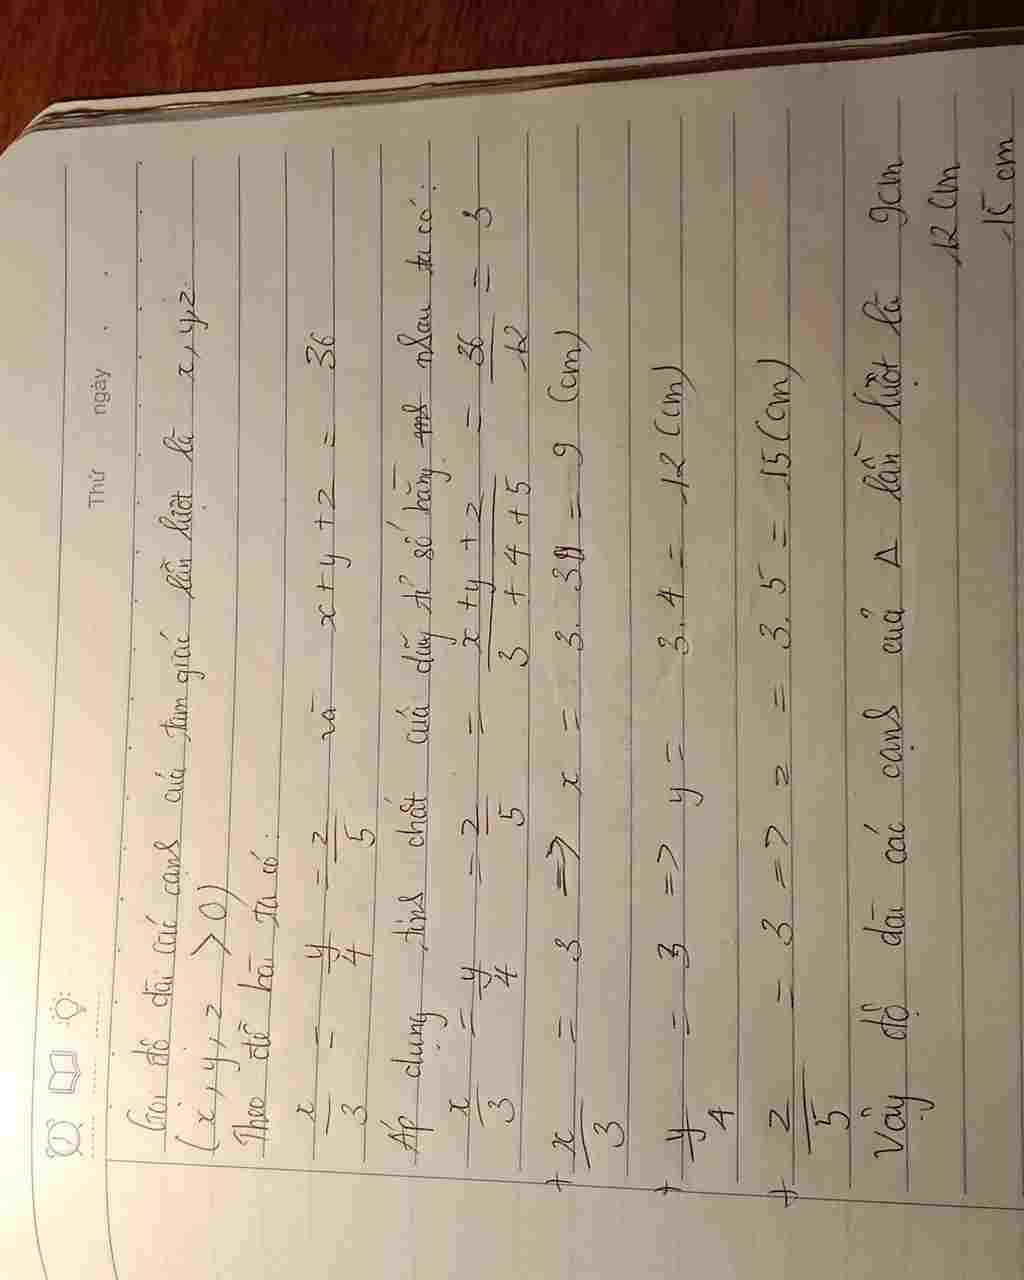 Thứ ngày
Gọi độ dài các cạnh của tam giác lần lượt là x, y, z
(x, y, z > 0)
Theo đề bài ta có:
x/3 = y/4 = z/5 và x + y + z = 36
Áp dụng tính chất của dãy tỉ số bằng nhau ta có:
x/3 = y/4 = z/5 = (x + y + z)/(3 + 4 + 5) = 36/12 = 3
+ x/3 = 3 => x = 3.3 = 9 (cm)
+ y/4 = 3 => y = 3.4 = 12 (cm)
+ z/5 = 3 => z = 3.5 = 15 (cm)
Vậy độ dài các cạnh của Δ lần lượt là 9cm
12 cm
15 cm